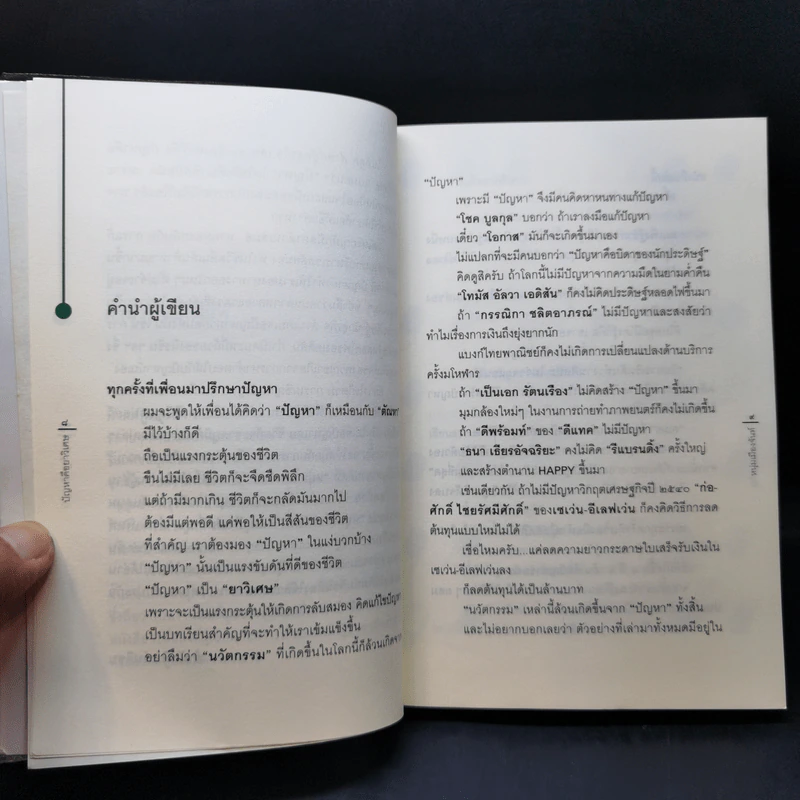 คำนำผู้เขียน
ทุกครั้งที่เพื่อนมาปรึกษาปัญหา
ผมจะพูดให้เพื่อนได้คิดว่า "ปัญหา" ก็เหมือนกับ "ตัณหา"
มีไว้บ้างก็ดี
ถือเป็นแรงกระตุ้นของชีวิต
ขืนไม่มีเลย ชีวิตก็จะจืดชืดพิลึก
แต่ถ้ามีมากเกิน ชีวิตก็จะกลัดมันมากไป
ต้องมีแต่พอดี แค่พอให้เป็นสีสันของชีวิต
ที่สำคัญ เราต้องมอง "ปัญหา" ในแง่บวกบ้าง
"ปัญหา" นั้นเป็นแรงขับดันที่ดีของชีวิต
"ปัญหา" เป็น "ยาวิเศษ"
เพราะจะเป็นแรงกระตุ้นให้เกิดการลับสมอง คิดแก้ไขปัญหา
เป็นบทเรียนสำคัญที่จะทำให้เราเข้มแข็งขึ้น
อย่าลืมว่า "นวัตกรรม" ที่เกิดขึ้นในโลกนี้ก็ล้วนเกิดจาก
ปัญหาคือยาวิเศษ
"ปัญหา"
เพราะมี "ปัญหา" จึงมีคนคิดหาหนทางแก้ปัญหา
"โชค บูลกุล" บอกว่า ถ้าเราลงมือแก้ปัญหา
เดี๋ยว "โอกาส" มันก็จะเกิดขึ้นมาเอง
ไม่แปลกที่จะมีคนบอกว่า "ปัญหาคือบิดาของนักประดิษฐ์"
คิดดูสิครับ ถ้าโลกนี้ไม่มีปัญหาจากความมืดในยามค่ำคืน
"โทมัส อัลวา เอดิสัน" ก็คงไม่คิดประดิษฐ์หลอดไฟขึ้นมา
ถ้า "กรรณิกา ชลิตอาภรณ์" ไม่มีปัญหาและสงสัยว่า
ทำไมเรื่องการเงินถึงยุ่งยากนัก
แบงก์ไทยพาณิชย์ก็คงไม่เกิดการเปลี่ยนแปลงด้านบริการ
ครั้งมโหฬาร
ถ้า "เป็นเอก รัตนเรือง" ไม่คิดสร้าง "ปัญหา" ขึ้นมา
มุมกล้องใหม่ๆ ในงานการถ่ายทำภาพยนตร์ก็คงไม่เกิดขึ้น
ถ้า "ดีพร้อมท์" ของ "ดีแทค" ไม่มีปัญหา
"ธนา เธียรอัจฉริยะ" คงไม่คิด "รีแบรนดิ้ง" ครั้งใหญ่
และสร้างตำนาน HAPPY ขึ้นมา
เช่นเดียวกัน ถ้าไม่มีปัญหาวิกฤตเศรษฐกิจปี ๒๕๔๐ "ก่อ-
ศักดิ์ ไชยรัศมีศักดิ์" ของเซเว่น-อีเลฟเว่น ก็คงคิดวิธีการลด
ต้นทุนแบบใหม่ไม่ได้
เชื่อไหมครับ...แค่ลดความยาวกระดาษใบเสร็จรับเงินใน
เซเว่น-อีเลฟเว่นลง
ก็ลดต้นทุนได้เป็นล้านบาท
"นวัตกรรม" เหล่านี้ล้วนเกิดขึ้นจาก "ปัญหา" ทั้งสิ้น
และไม่อยากบอกเลยว่า ตัวอย่างที่เล่ามาทั้งหมดมีอยู่ใน
หนุ่มเมืองจันท์